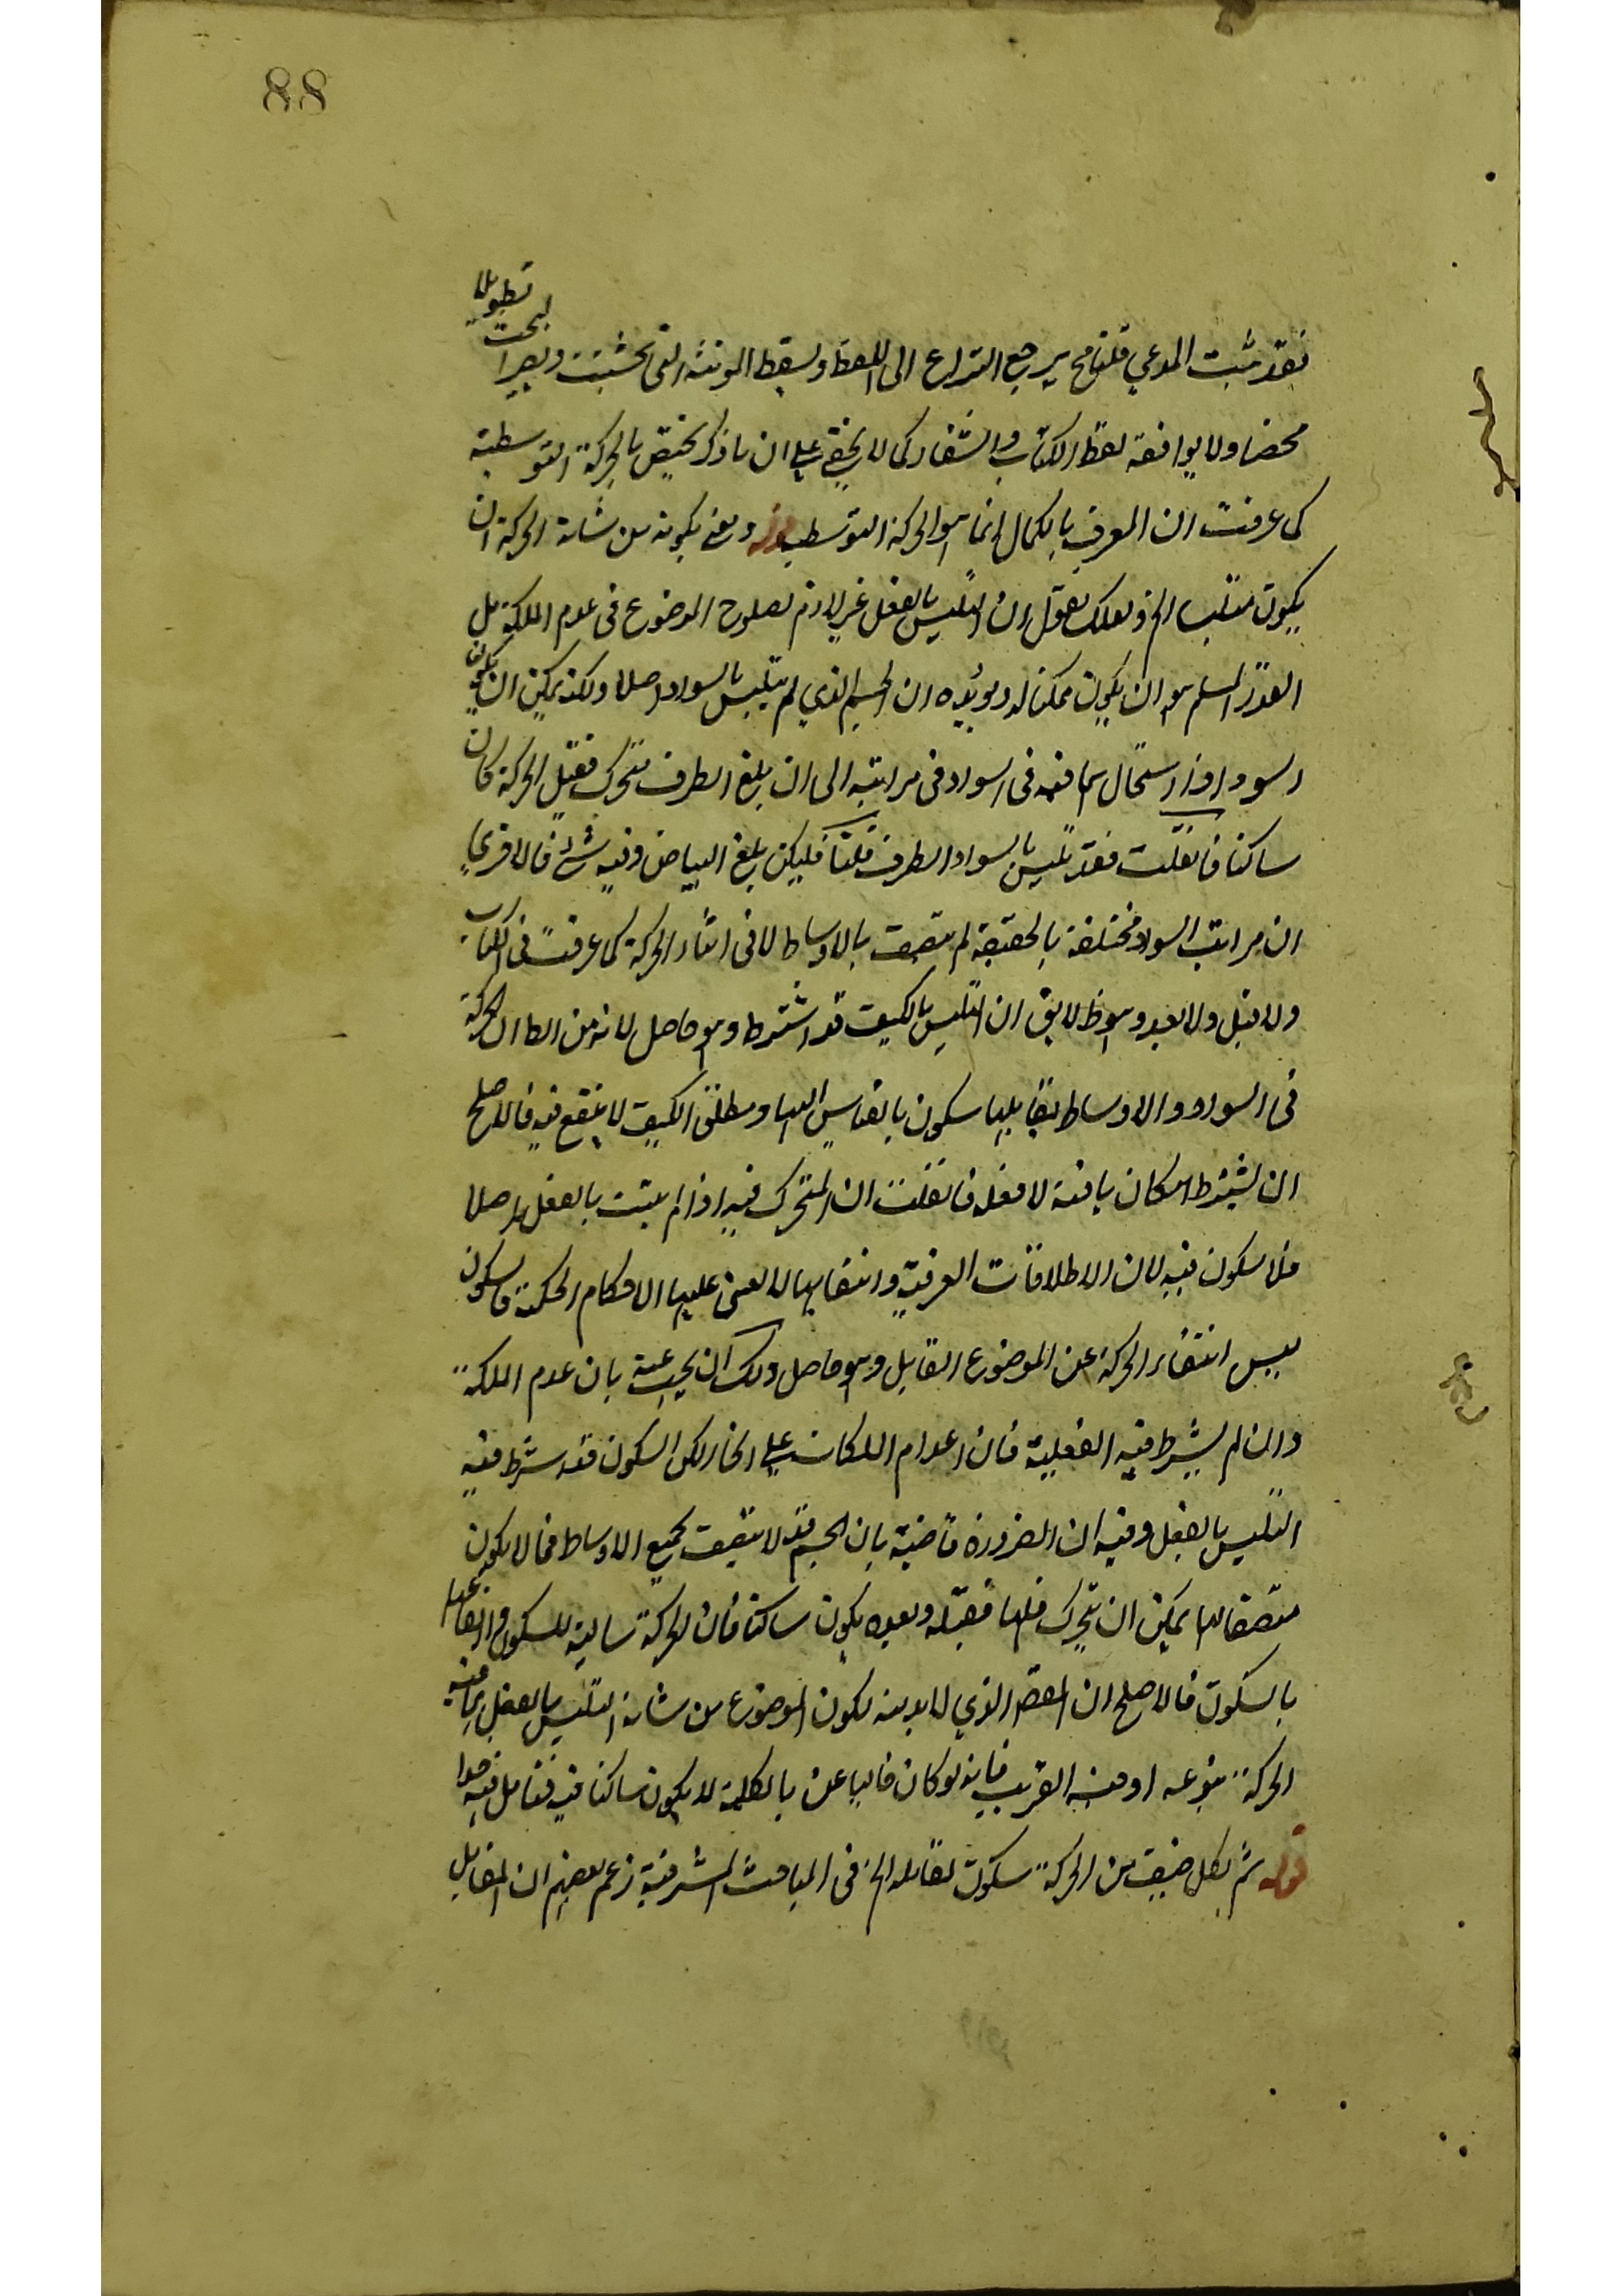 88
فقد ثبت المدعي قلنا فح يرجع النزاع الى اللفظ ويسقط المونة التي تحشمت ويصير البحث تطويلا
محضا ولا يوافقه لفظ الكتاب والشفاء كما لا يخفى على ان ما ذكر يختص بالحركة التوسطية
كما عرفت ان المعرف بالكمال انما هو الحركة التوسطية قوله ونعني بكونه من شانه الحركة ان
يكون متلبسا الخ ولعلك تقول ان التلبس بالفعل غير لازم لصلوح الموضوع في عدم الملكة بل
القدر المسلم هو ان يكون ممكنا له ويؤيده ان الجسم الذي لم يتلبس بالسواد اصلا ولكنه يمكن ان يكون
اسود اذا استحال مما فيه في السواد في مراتبه الى ان بلغ الطرف متحرك فقبل الحركة كان
ساكنا فان قلت فقد تلبس بالسواد الطرف قلنا فليكن بلغ البياض وفيه شئ فالاحرى
ان مراتب السواد مختلفة بالحقيقة لم يتصف بالاوساط لا في اثناء الحركة كما عرفت في الكتاب
ولا قبل ولا بعد وهو ظ لا يق ان التلبس بالكيف قد اشترط وهو حاصل لانه من الظ ان الحركة
في السواد والاوساط تقابلها سكون بالقياس اليها ومطلق الكيف لا ينفع فيه فالاصلح
ان يشترط امكان ما فيه لا فعله فان قلت ان المتحرك فيه اذا لم يثبت بالفعل اصلا
فلا سكون فيه لان الاطلاقات العرفية وانتفائها لا تبتني عليها الاحكام الحكمية فالسكون
ليس انتفاء الحركة عن الموضوع القابل وهو حاصل ولك ان يجيب عنه بان عدم الملكة
وان لم يشترط فيه الفعلية فان اعدام الملكات على انحاء لكن السكون قد شرط فيه
التلبس بالفعل وفيه ان الضرورة قاضية بان الجسم قد لا يتصف بجميع الاوساط فما لا يكون
متصفا لها يمكن ان يتحرك فلها فقبله وبعده يكون ساكنا فان الحركة سالبة للسكون
بالسكون فالاصلح ان المقصد الذي لا بد منه لكون الموضوع من شانه التلبس بالفعل بما فيه
الحركة بنوعه او جنسه القريب فانه لو كان خاليا عنه بالكلية لا يكون ساكنا فيه فتامل فيه جدا
قوله ثم لكل صنف من الحركة سكون يقابله الخ في المباحث المشرقية زعم بعضهم ان المقابل